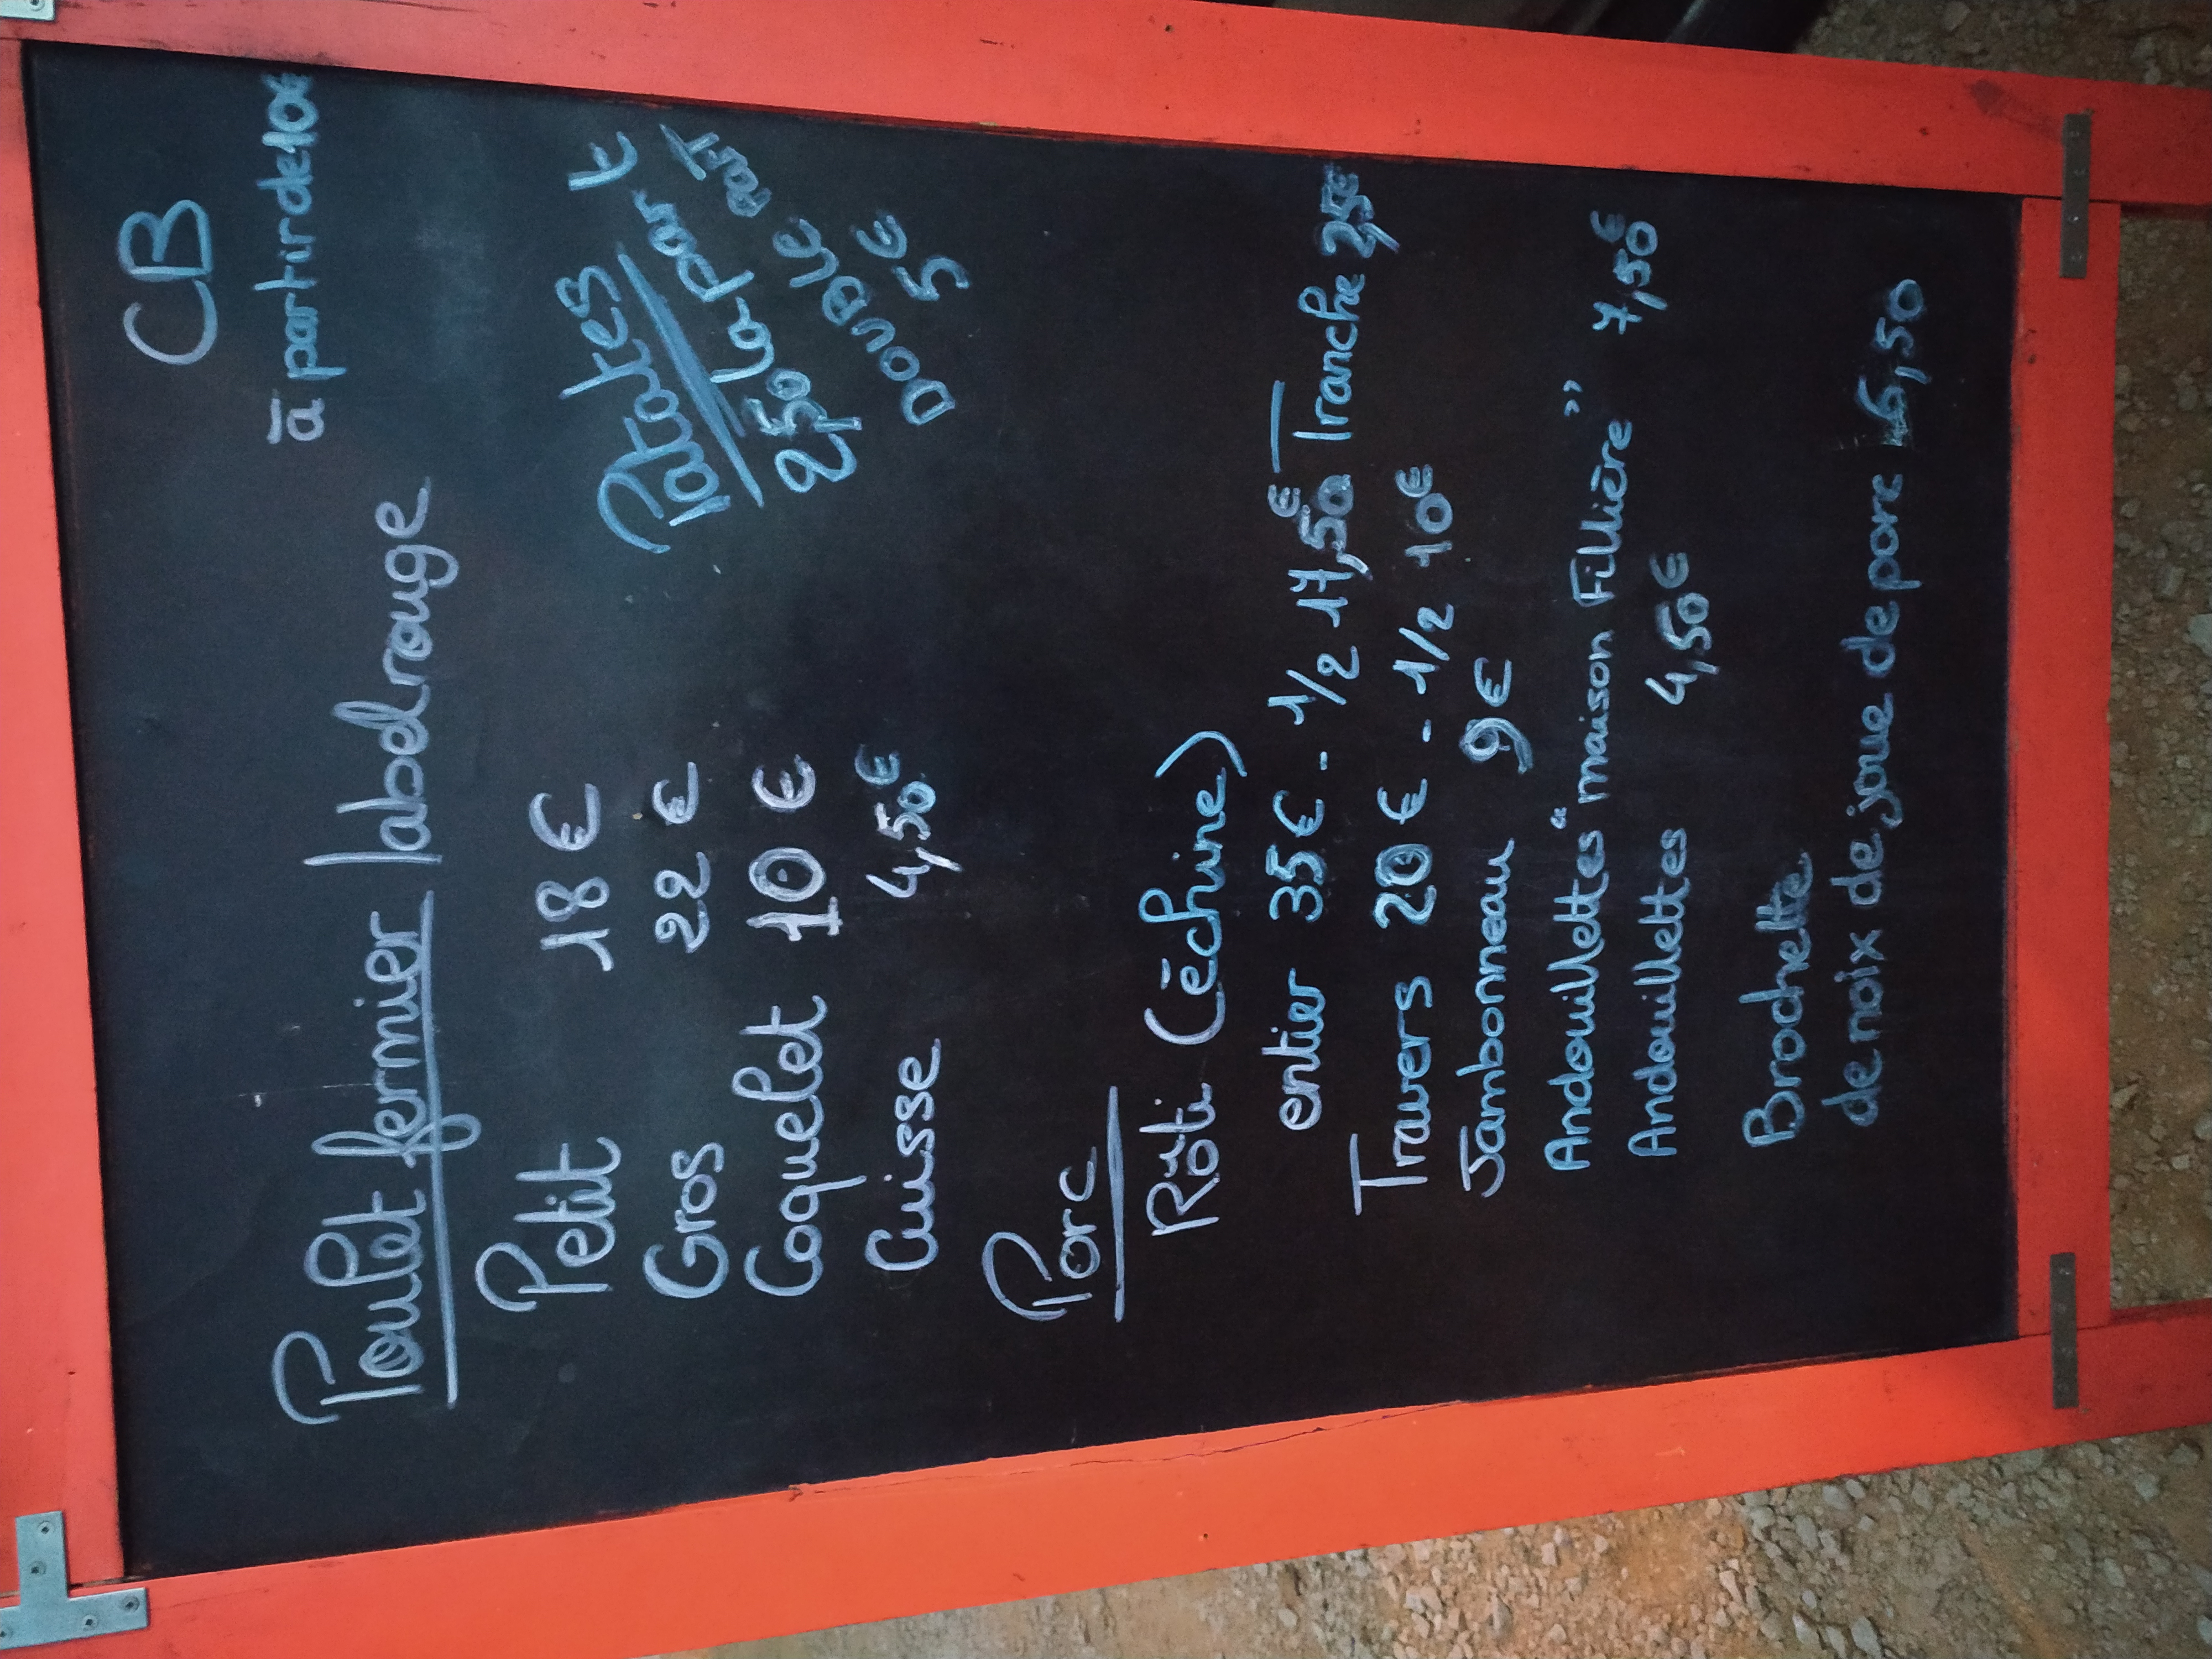 CB
à partir de 10€
Poulet fermier label rouge
Petit 18 €
Gros 22 €
Coquelet 10 €
Cuisse 4,50€
Patates
2,50 la part
DOUBLE part
5€
Porc
Rôti (échine)
entier 35€ - 1/2 17,50€ Tranche 2,5€
Travers 20€ - 1/2 10€
Jambonneau 9€
Andouillettes "maison Fillière" 7,50€
Andouillettes 4,50€
Brochette
de noix de joue de porc 6,50